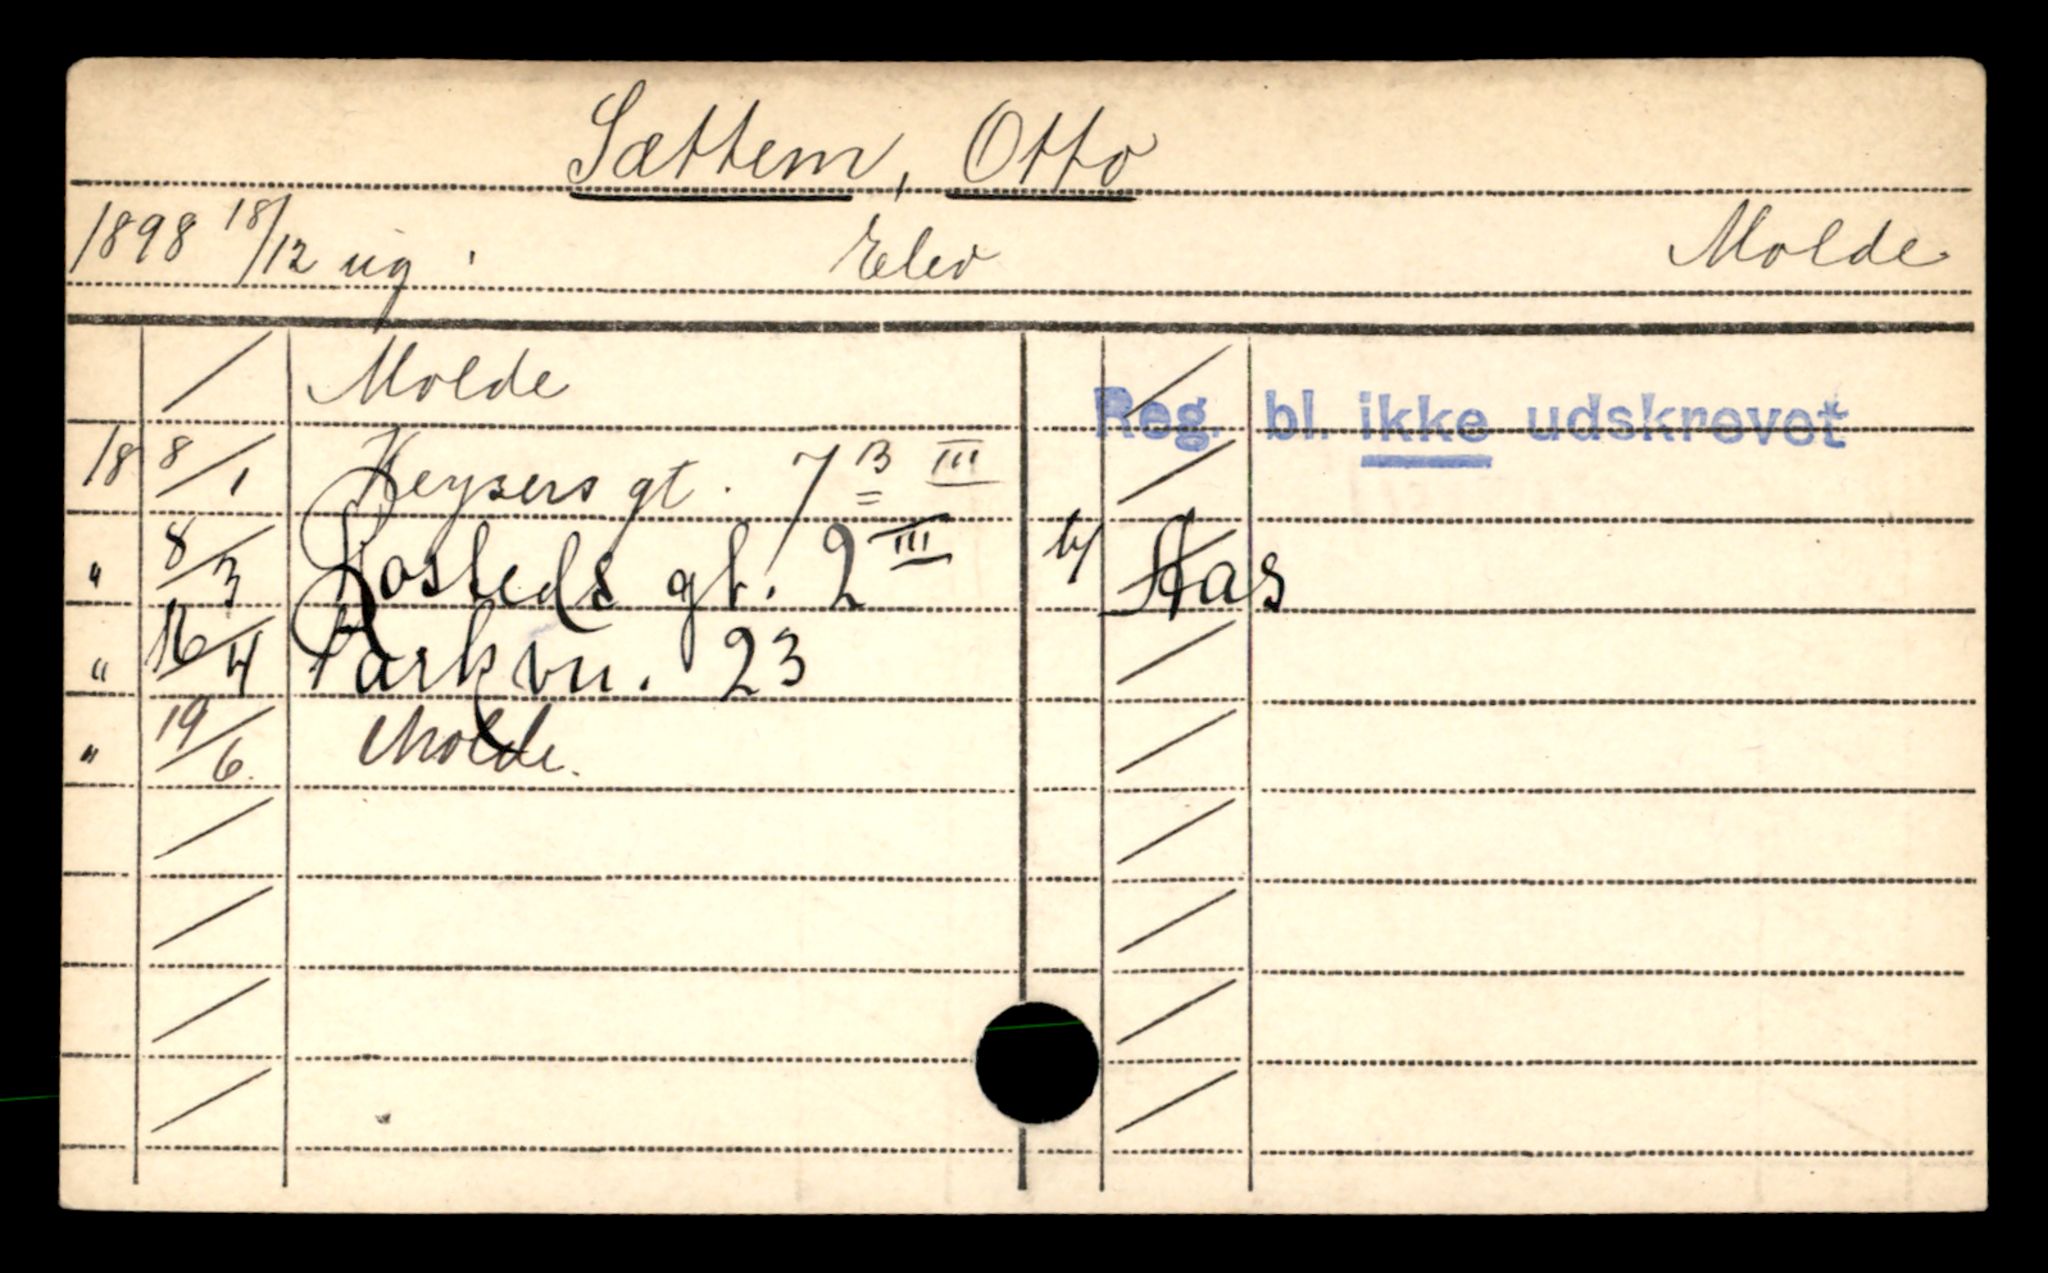 Sættem, Otto
1898 18/12 ug. Elev Molde
/ Molde
Reg. bl. ikke udskrevet
18 8/1 Keysers gt. 7 B III
" 8/3 Rosteds gt. 2 III b/ Aas
" 16/4 Parkvn. 23
" 19/6 Molde.